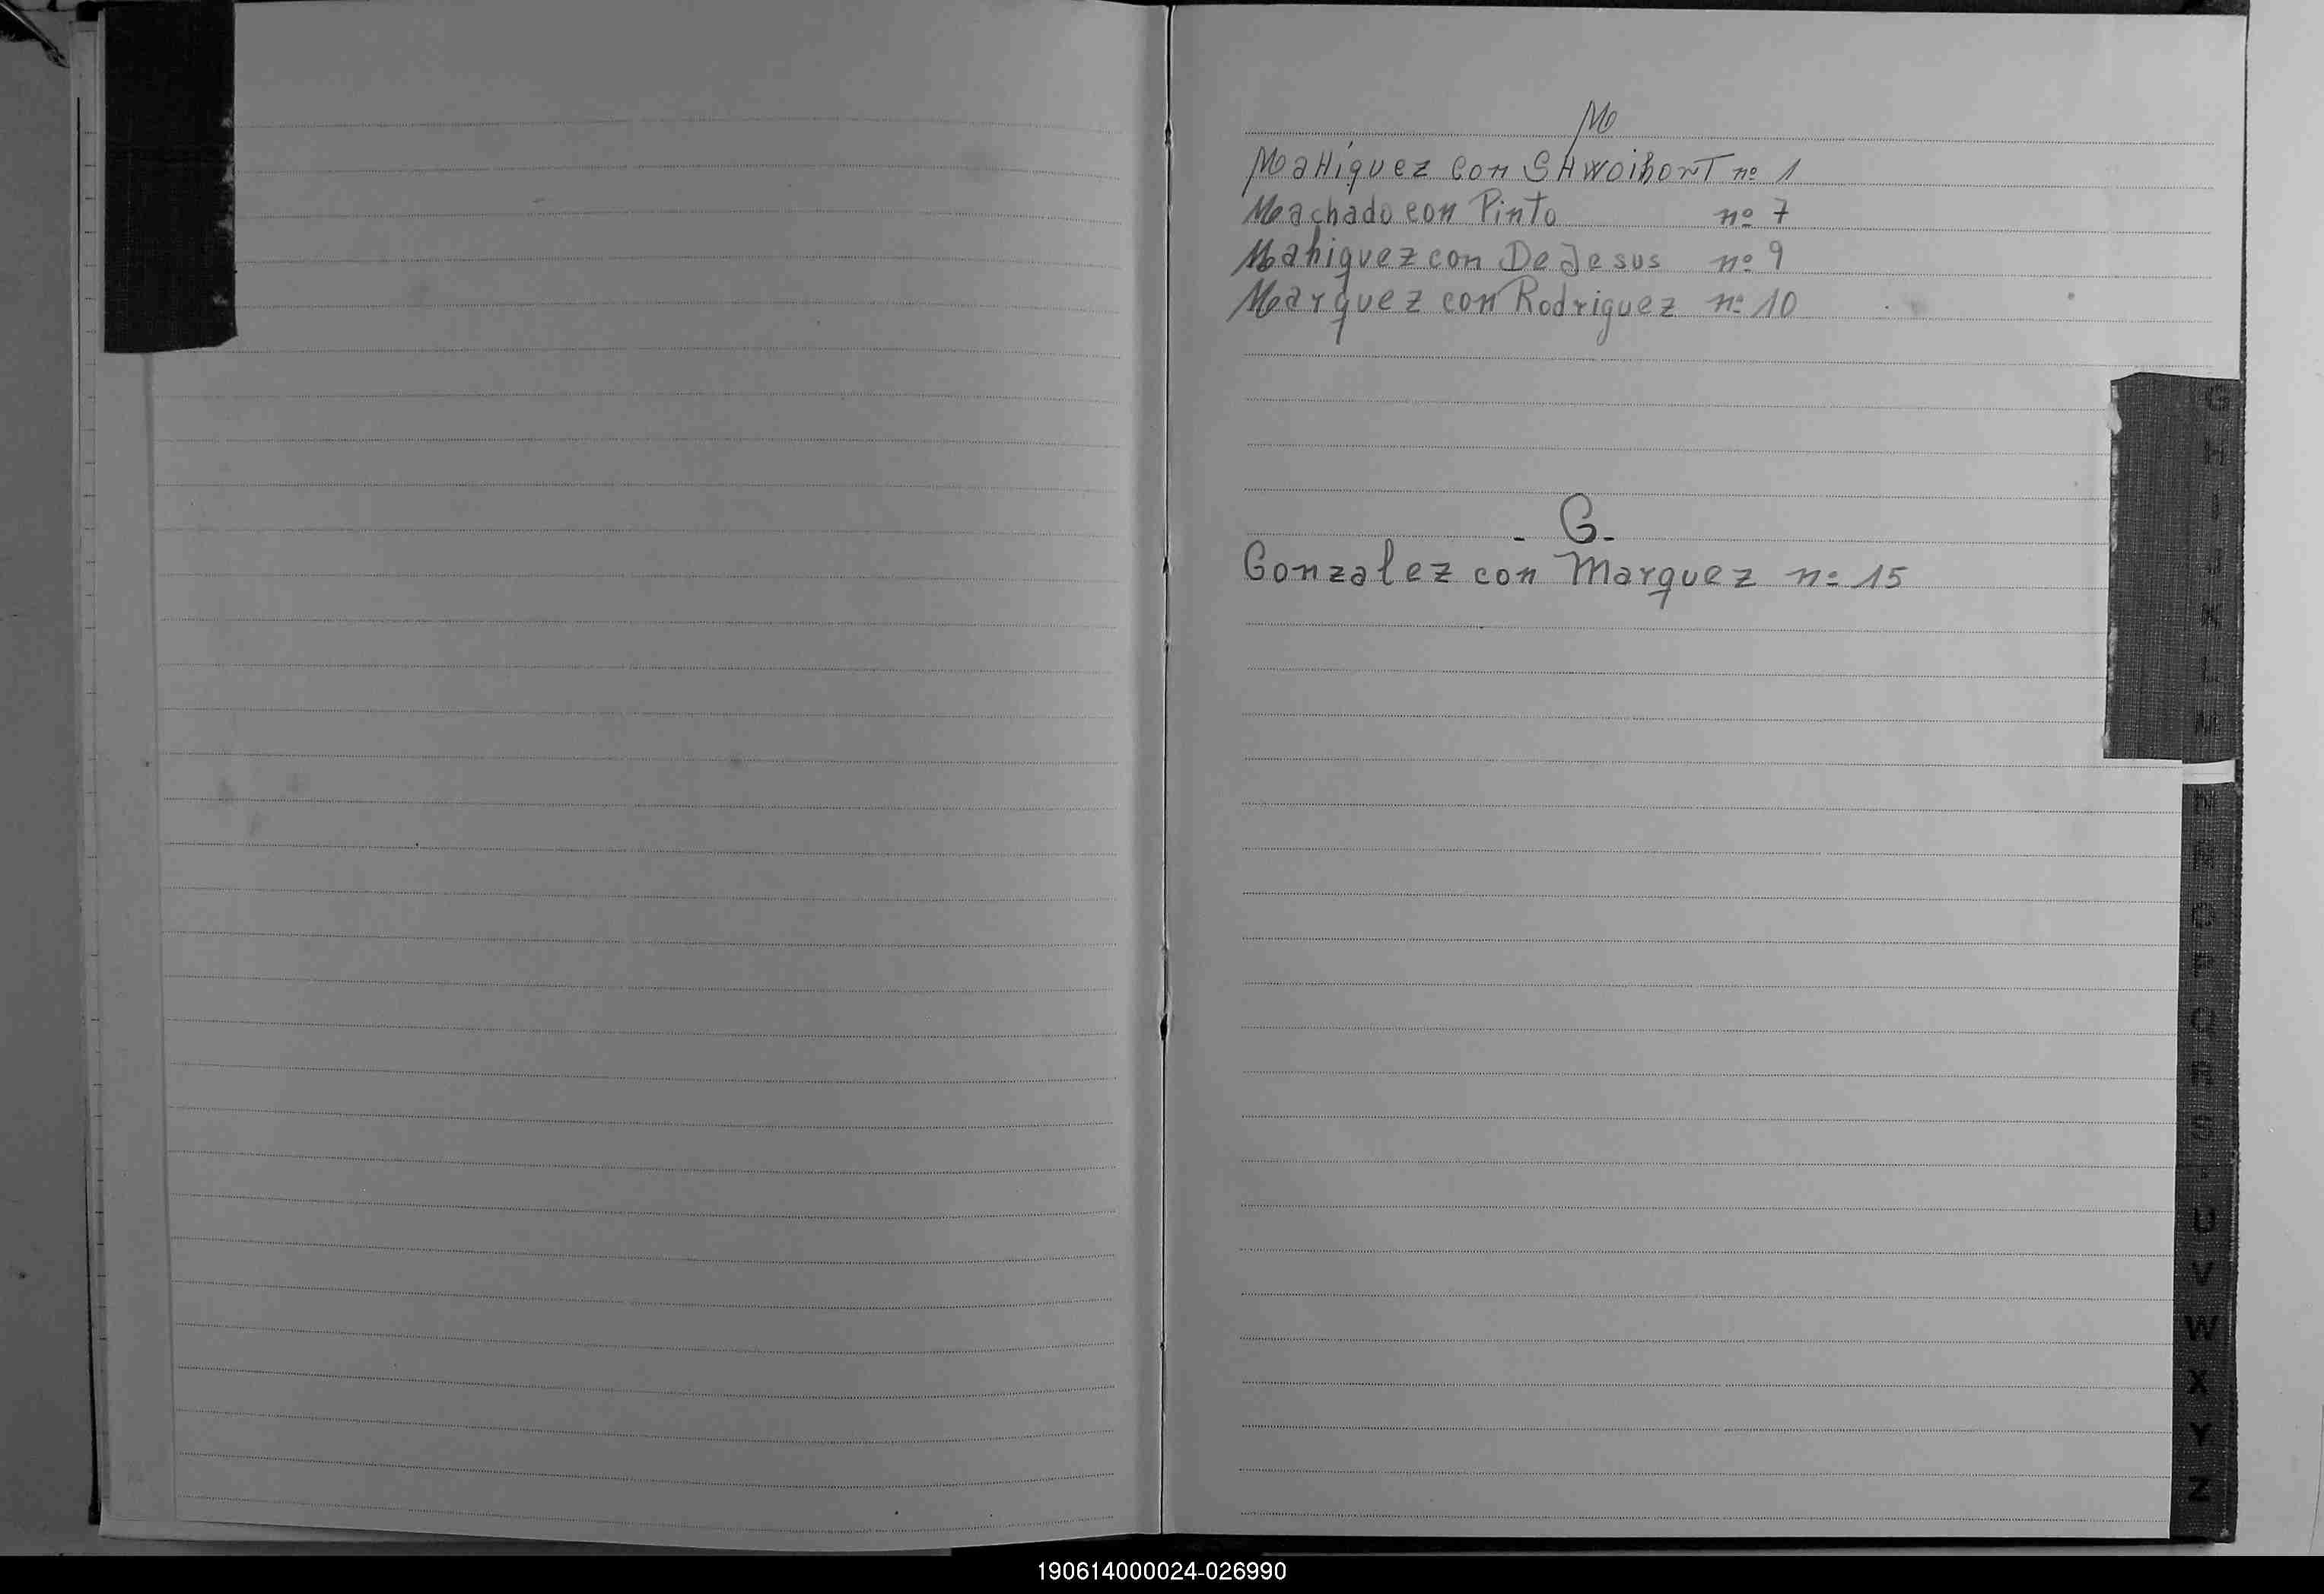 M
MaHiquez con SHWoihonT nº 1
Machado con Pinto nº 7
Mahiquez con De Jesus nº 9
Marquez con Rodriguez nº 10
- G -
Gonzalez con Marquez nº 15
G
H
I
J
K
L
M
N
Ñ
O
P
Q
R
S
T
U
V
W
X
Y
Z
190614000024-026990